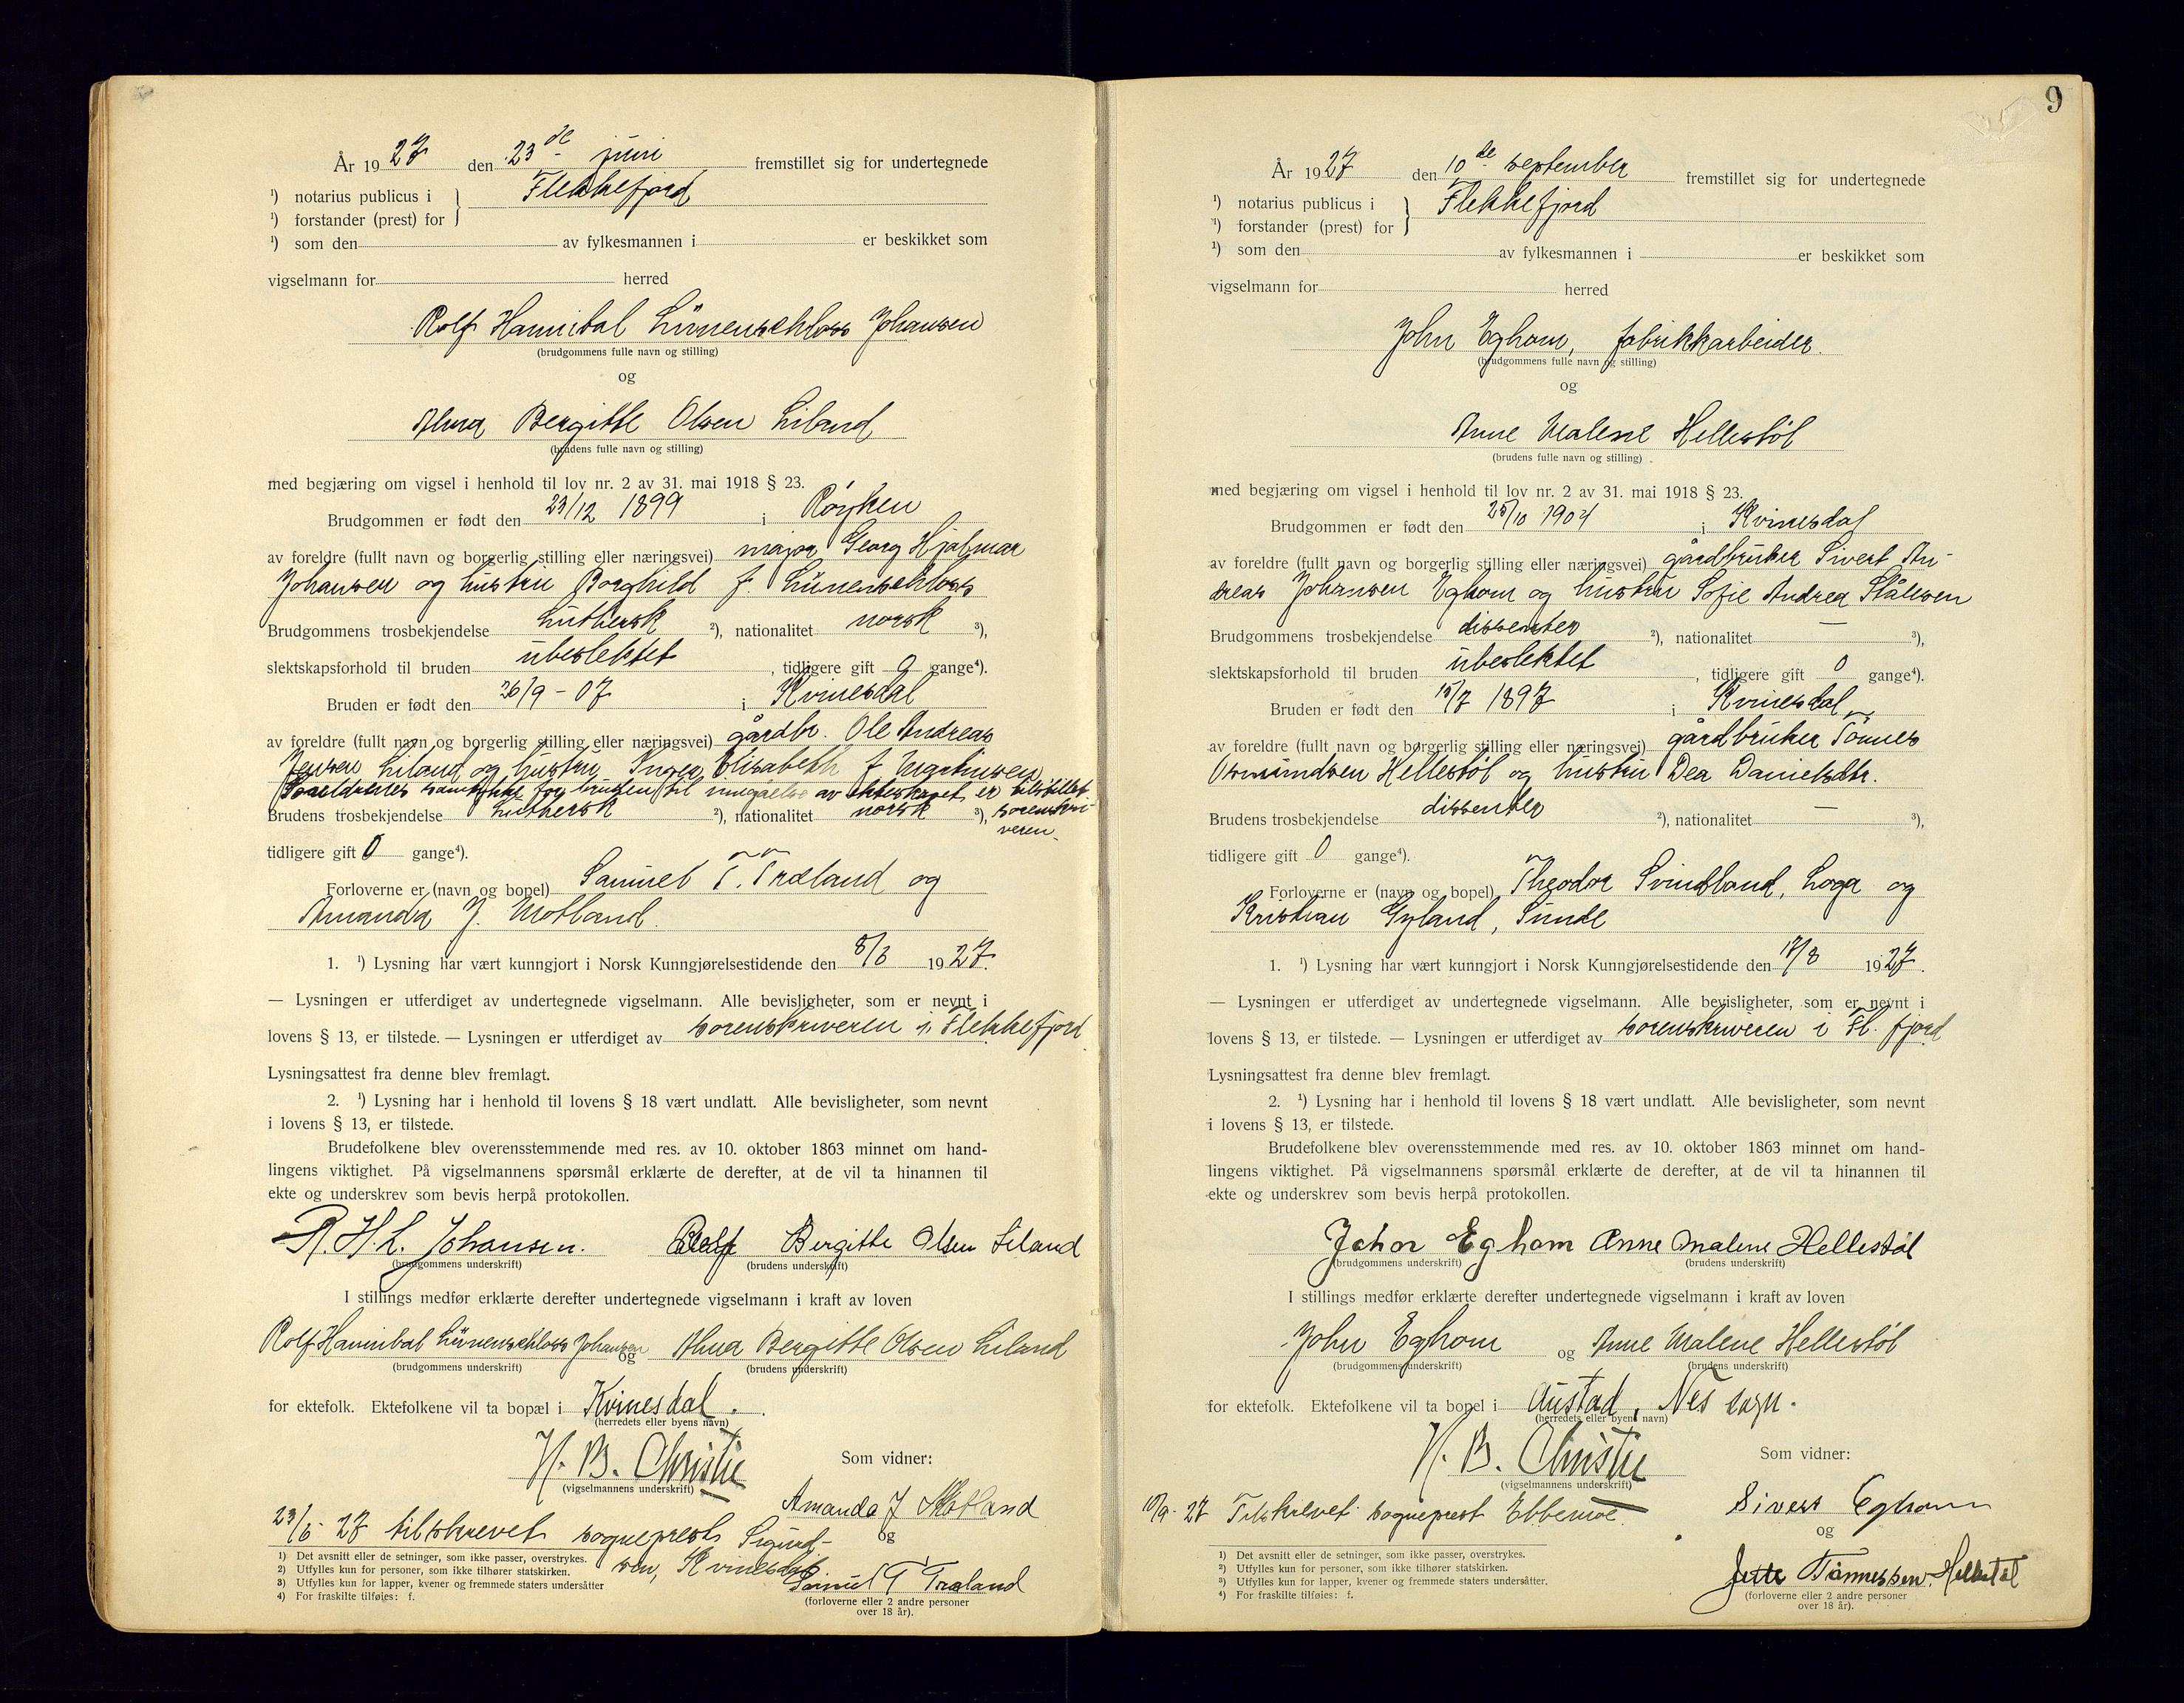 År 1927 den 23de juni fremstillet sig for undertegnede
¹) notarius publicus i } Flekkefjord
¹) forstander (prest) for
¹) som den av fylkesmannen i er beskikket som
vigselmann for herred
Rolf Hannibal Lünenschloss Johansen
(brudgommens fulle navn og stilling)
og
Alma Bergitte Olsen Liland
(brudens fulle navn og stilling)
med begjæring om vigsel i henhold til lov nr. 2 av 31. mai 1918 § 23.
Brudgommen er født den 23/12 1899 i Røyken
av foreldre (fullt navn og borgerlig stilling eller næringsvei) major Georg Hjalmar
Johansen og hustru Borghild f. Lünenschloss
Brudgommens trosbekjendelse luthersk ²), nationalitet norsk ³),
slektskapsforhold til bruden ubeslektet, tidligere gift 0 gange⁴).
Bruden er født den 26/9 - 07 i Kvinesdal
av foreldre (fullt navn og borgerlig stilling eller næringsvei) gårdbr. Ole Andreas
Jensen Liland og hustru Inger Elisabeth f.
Foreldrenes samtykke for bruden til inngåelse av ekteskapet er tilstillet
Brudens trosbekjendelse luthersk ²), nationalitet norsk ³), sorenskri-
veren.
tidligere gift 0 gange⁴).
Forloverne er (navn og bopel) Samuel T. Træland og
Amanda J. Motland.
1. ¹) Lysning har vært kunngjort i Norsk Kunngjørelsestidende den 8/6 1927.
— Lysningen er utferdiget av undertegnede vigselmann. Alle bevisligheter, som er nevnt i
lovens § 13, er tilstede. — Lysningen er utferdiget av sorenskriveren i Flekkefjord
Lysningsattest fra denne blev fremlagt.
2. ¹) Lysning har i henhold til lovens § 18 vært undlatt. Alle bevisligheter, som nevnt
i lovens § 13, er tilstede.
Brudefolkene blev overensstemmende med res. av 10. oktober 1863 minnet om hand-
lingens viktighet. På vigselmannens spørsmål erklærte de derefter, at de vil ta hinannen til
ekte og underskrev som bevis herpå protokollen.
R. H. L. Johansen. Bergitte Olsen Liland
(brudgommens underskrift) (brudens underskrift)
I stillings medfør erklærte derefter undertegnede vigselmann i kraft av loven
Rolf Hannibal Lünenschloss Johansen og Alma Bergitte Olsen Liland
(brudgommens underskrift) (brudens underskrift)
for ektefolk. Ektefolkene vil ta bopæl i Kvinesdal.
(herredets eller byens navn)
H. B. Christie Som vidner:
(vigselmannens underskrift)
Amanda J Motland
23/6 - 27 tilskrevet sogneprest Sigurd-
sen, Kvinesdal.
og
Samuel T Træland
(forloverne eller 2 andre personer
over 18 år).
1) Det avsnitt eller de setninger, som ikke passer, overstrykes.
2) Utfylles kun for personer, som ikke tilhører statskirken.
3) Utfylles kun for lapper, kvener og fremmede staters undersåtter
4) For fraskilte tilføies: f.
9
År 1927 den 10de september fremstillet sig for undertegnede
¹) notarius publicus i } Flekkefjord
¹) forstander (prest) for
¹) som den av fylkesmannen i er beskikket som
vigselmann for herred
John Eghom, fabrikkarbeider.
(brudgommens fulle navn og stilling)
og
Anne Malene Hellestøl
(brudens fulle navn og stilling)
med begjæring om vigsel i henhold til lov nr. 2 av 31. mai 1918 § 23.
Brudgommen er født den 25/10 1904 i Kvinesdal
av foreldre (fullt navn og borgerlig stilling eller næringsvei) gårdbruker Sivert An-
dreas Johansen Eghom og hustru Sofie Andrea Stålesen
Brudgommens trosbekjendelse dissenter ²), nationalitet — ³),
slektskapsforhold til bruden ubeslektet, tidligere gift 0 gange⁴).
Bruden er født den 15/7 1897 i Kvinesdal
av foreldre (fullt navn og borgerlig stilling eller næringsvei) gårdbruker Tønnes
Osmundsen Hellestøl og hustru Dea Danielsdtr.
Brudens trosbekjendelse dissenter ²), nationalitet — ³),
tidligere gift 0 gange⁴).
Forloverne er (navn og bopel) Theodor Svindland, Loga og
Kristian Gyland, Sunde
1. ¹) Lysning har vært kunngjort i Norsk Kunngjørelsestidende den 17/8 1927.
— Lysningen er utferdiget av undertegnede vigselmann. Alle bevisligheter, som er nevnt i
lovens § 13, er tilstede. — Lysningen er utferdiget av sorenskriveren i Fl. fjord
Lysningsattest fra denne blev fremlagt.
2. ¹) Lysning har i henhold til lovens § 18 vært undlatt. Alle bevisligheter, som nevnt
i lovens § 13, er tilstede.
Brudefolkene blev overensstemmende med res. av 10. oktober 1863 minnet om hand-
lingens viktighet. På vigselmannens spørsmål erklærte de derefter, at de vil ta hinannen til
ekte og underskrev som bevis herpå protokollen.
John Eghom Anne Malene Hellestøl
(brudgommens underskrift) (brudens underskrift)
I stillings medfør erklærte derefter undertegnede vigselmann i kraft av loven
John Eghom og Anne Malene Hellestøl
(brudgommens underskrift) (brudens underskrift)
for ektefolk. Ektefolkene vil ta bopel i Austad, Nes sogn.
(herredets eller byens navn)
H. B. Christie Som vidner:
(vigselmannens underskrift)
10/9 - 27 Tilskrevet sogneprest Ebbemoe.
Sivert Eghom
og
Jette Tønnessen Hellestøl
(forloverne eller 2 andre personer
over 18 år).
1) Det avsnitt eller de setninger, som ikke passer, overstrykes.
2) Utfylles kun for personer, som ikke tilhører statskirken.
3) Utfylles kun for lapper, kvener og fremmede staters undersåtter.
4) For fraskilte tilføies: f.